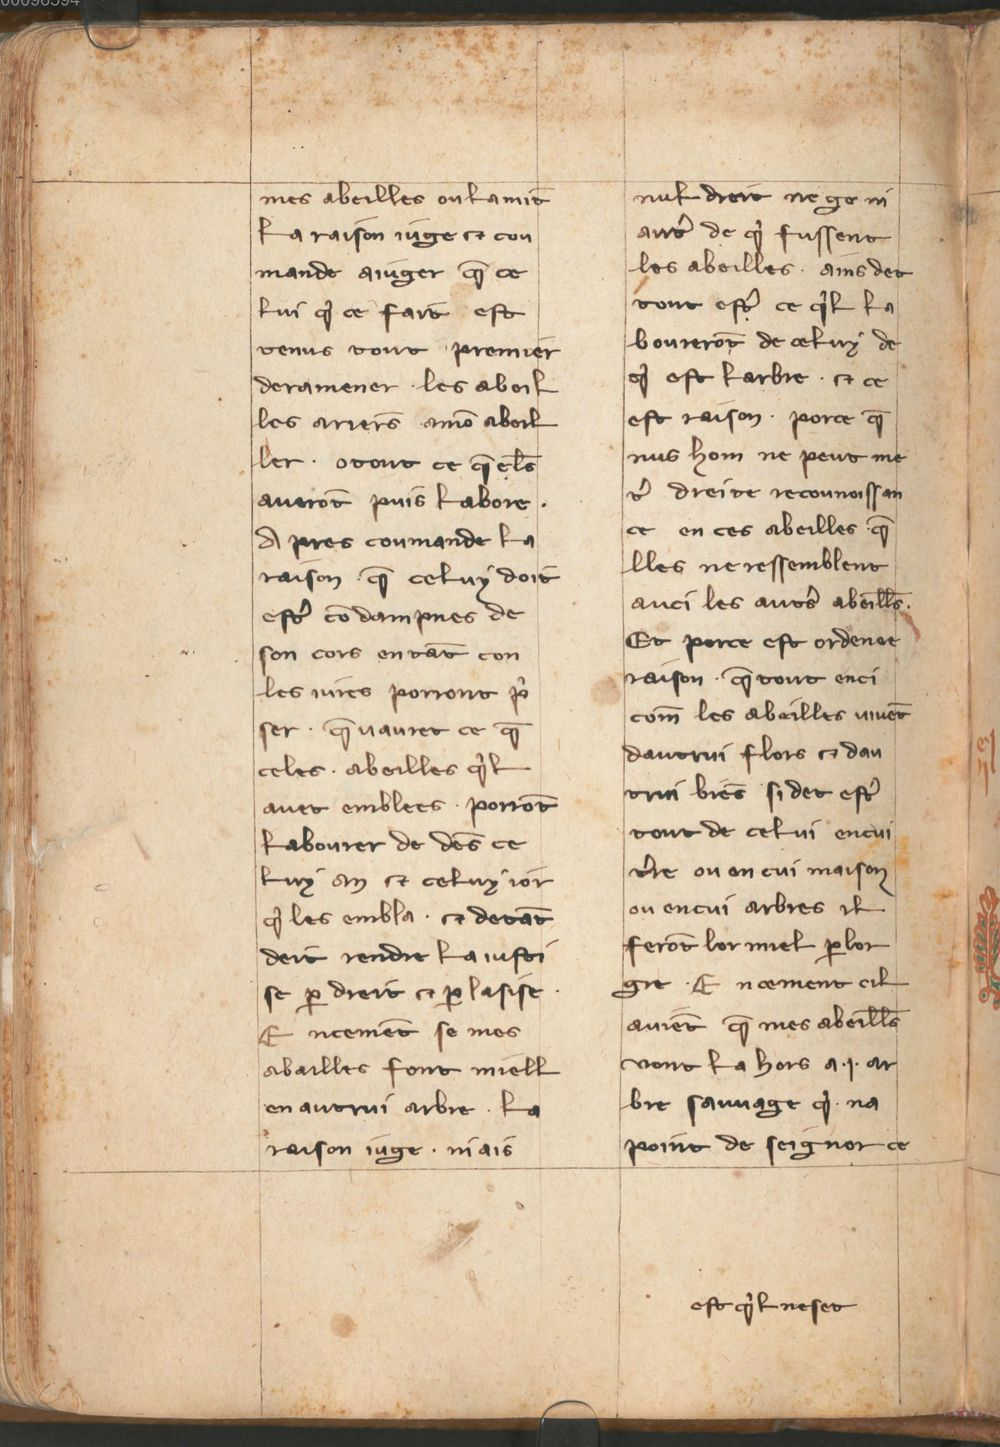 mes abeilles ou la mit̄
la raison iuge et cou
mande aiuger q̄ ce
lui qͥ ce fait est
tenus tout premier
deramener les abeil
les ariers̄ amō abeil
ler · otout ce q̄ el̄s
averōt puis labore ·
A pres coumande la
raison · q̄ celuy doit
estᷣ cōdampnes de
son cors entāt con
les iuies porront pͥ
ser · q̄ vauret ce q̄
celes · abeilles qͥl
avet emblees · porrōt
labourer de dēs ce
luy an et celuy ior
qͥ les embla · et detāt
deit rendre la iusti
se ꝑ dreit et ꝑ lasise ·
E ncemēt se mes
abailles font miell
en autrui arbre · la
raison iuge · ni ais
nul dreit ne ge ni
autᷣ de qͥ fussent
les abeilles · ains det
tout estᷣ ce qͥl la
bourerōt de celuy de
qͥ est larbre · et ce
est raison · porce q̄
nus hom ne peut me
tᷣ dreite recounoissan
ce en ces abeilles q̄
lles ne ressemblent
auci les autᷣs abeill̄s ·
Et porce est ordenee
raison · q̄ tout enci
com̄ les abeilles vivēt
dautrui flors et dau
trui biēs si det estᷣ
tout de celui encui
tᷣre ou en cui maison
ou encui arbres il
ferōt lor miel ꝑ lor
gre · E ncement cil
auiēt q̄ mes abeill̄s
vont la hors a ·j· ar
bre sauvage qͥ na
point de seignor ce
est qͥl neset